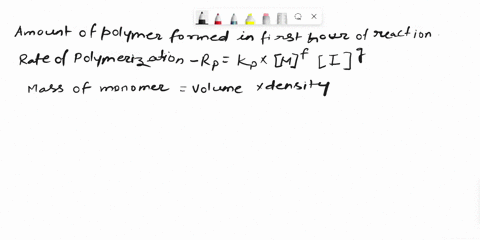 Amount of polymer formed in first hour of reaction.
Rate of Polymerization - Rp = Kp × [M]^f [I]^g
Mass of monomer = volume × density